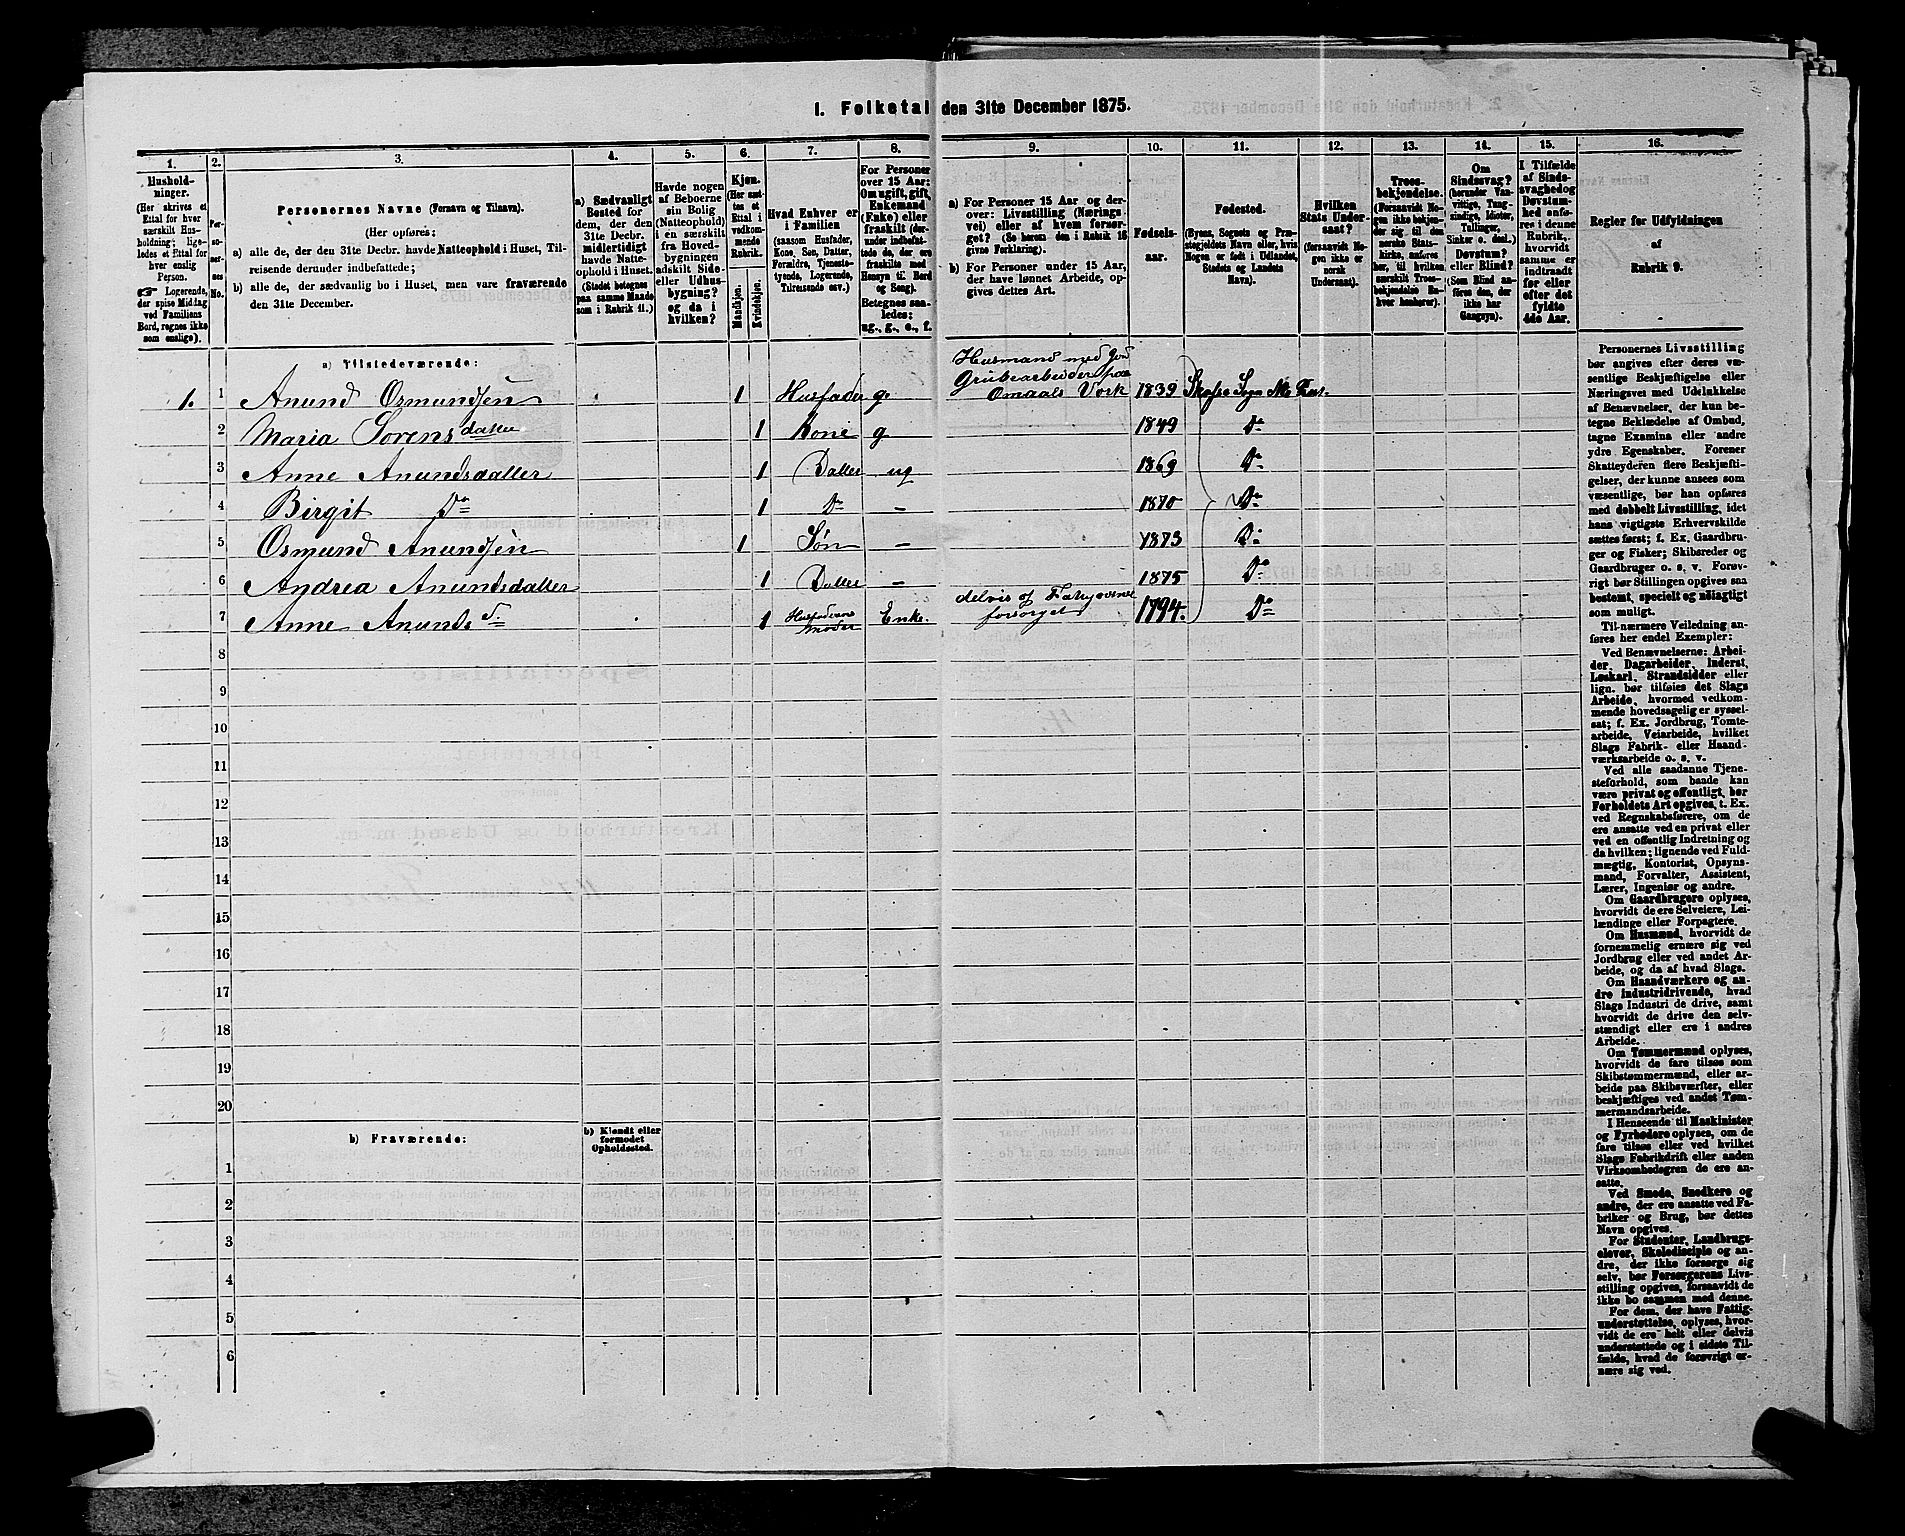 I. Folketal den 31te December 1875.
1. 2. 3. 4. 5. 6. 7. 8. 9. 10. 11. 12. 13. 14. 15. 16.
Hushold-
ninger.
(Her skrives et
Ettal for hver
særskilt Hus-
holdning; lige-
ledes et Ettal for
hver enslig
Person.
☞ Logerende,
der spise Middag
ved Familiens
Bord, regnes ikke
som enslige).
Per-
so-
ner-
nes
No.
Personernes Navne (Fornavn og Tilnavn).
(Her opføres;
a) alle de, der den 31te Decbr. havde Natteophold i Huset, Til-
reisende derunder indbefattede;
b) alle de, der sædvanlig bo i Huset, men vare fraværende
den 31te December.
a) Sædvanligt
Bosted for
dem, der den
31te Decbr.
midlertidigt
havde Natte-
ophold i Huset.
(Stedet betegnes
paa samme Maade
som i Rubrik 11.)
Havde nogen
af Beboerne
sin Bolig
(Natteophold)
i en særskilt
fra Hoved-
bygningen
adskilt Side-
eller Udhus-
bygning?
og da i
hvilken?
Kjøn.
(Her sæt-
tes et
Ettal i
vedkom-
mende
Rubrik.
Mandkjøn.
Kvindekjøn.
Hvad Enhver er
i Familien
(saasom Husfader,
Kone, Søn, Datter,
Forældre, Tjeneste-
tyende, Logerende,
Tilreisende osv.)
For Personer
over 15 Aar:
Om ugift, gift,
Enkemand
(Enke) eller
fraskilt (der-
under indbefat-
tede de, der ere
fraskilte med
Hensyn til Bord
og Seng).
Betegnes saa-
ledes:
ug., g., e., f.
a) For Personer 15 Aar og der-
over: Livsstilling (Nærings-
vei) eller af hvem forsør-
get? (Se herom den i Rubrik 16
givne Forklaring).
b) For Personer under 15 Aar,
der have lønnet Arbeide, op-
gives dettes Art.
Fødsels-
aar.
Fødested.
(Byens, Sognets og Præ-
stegjeldets Navn eller, hvis
Nogen er født i Udlandet,
Stedets og Landets
Navn).
Hvilken
Stats Under-
saat?
(forsaavidt No-
gen ikke er
norsk
Undersaat).
Troes-
bekjendelse.
(Forsaavidt No-
gen ikke bekjen-
der sig til den
norske Stats-
kirke, anføres
her, til hvilken
særskilt Troes-
bekjendelse En-
hver henhører).
Om
Sindssvag?
(herunder Van-
vittige, Tung-
sindige, Idioter,
Tullinger,
Sinker o. desl.)
Døvstum?
eller Blind?
(Som Blind an-
føres den, der
ikke har
Gangsyn).
I Tilfælde
af Sinds-
svaghed og
Døvstum-
hed anfø-
res i denne
Rubrik,
hvorvidt
samme er
indtraadt
før eller
efter det
fyldte
4de Aar.
Regler for Udfyldningen
af
Rubrik 9.
a) Tilstedeværende:
1. 1 Anund Osmundsen 1 Husfader g. Husmand med Jord Grubearbeider paa Omdals Verk 1839 Skafse Sogn Mo Præst.
2 Maria Sørensdatter 1 Kone g 1849 Do
3 Anne Anundsdatter 1 Datter ug 1869 Do
4 Birgit Do 1 Do – 1870 Do
5 Osmund Anundsen 1 Søn – 1873 Do
6 Andrea Anundsdatter 1 Datter – 1875 Do
7 Anne Anunds d. 1 Husfaderens Moder Enke. delvis af Fattigvæsnet forsørget 1794. Do
8
9
10
11
12
13
14
15
16
17
18
19
20
b) Fraværende:
b) Kjendt eller
formodet
Opholdssted.
1
2
3
4
5
6
Personernes Livsstilling
bør angives efter deres væ-
sentlige Beskjæftigelse eller
Næringsvei med Udelukkelse
af Benævnelser, der kun be-
tegne Beklædelse af Ombud,
tagne Examina eller andre
ydre Egenskaber. Forener
Skatteyderen flere Beskjæfti-
gelser, der kunne ansees som
væsentlige, bør han opføres
med dobbelt Livsstilling, idet
hans vigtigste Erhvervskilde
sættes først; f. Ex. Gaardbru-
ger og Fisker; Skibsreder og
Gaardbruger o. s. v. Forøv-
rigt bør Stillingen opgives saa
bestemt, specielt og nøiagtigt
som muligt.
Til nærmere Veiledning an-
føres her endel Exempler:
Ved Benævnelserne: Arbei-
der, Dagarbeider, Inderst,
Løskarl, Strandsidder eller
lign. bør tilføies det Slags
Arbeide, hvormed vedkom-
mende hovedsagelig er syssel-
sat; f. Ex. Jordbrug, Tomte-
arbeide, Veiarbeide, hvilket
Slags Fabrik- eller Haand-
værksarbeide o. s. v.
Ved alle saadanne Tjene-
steforhold, som baade kan
være privat og offentligt, bør
Forholdets Art opgives, t. Ex.
ved Regnskabsførere, om de
ere ansatte ved en privat eller
ved en offentlig Indretning og
da hvilken; lignende ved Fuld-
mægtig, Kontorist, Opsyns-
mand, Forvalter, Assistent,
Lærer, Ingeniør og andre.
Om Gaardbrugere oplyses,
hvorvidt de ere Selveiere, Lei-
lændinge eller Forpagtere.
Om Husmænd, hvorvidt de
fornemmelig ernære sig ved
Jordbrug eller ved andet Ar-
beide, og da af hvad Slags.
Om Haandværkere og an-
dre industridrivende, hvad
Slags Industri de drive, samt
hvorvidt de drive den selv-
stændigt eller ere i andres
Arbeide.
Om Tømmermænd oplyses,
hvorvidt de fare tilsøs som
Skibstømmermænd, eller ar-
beide paa Skibsværfter, eller
beskjæftiges ved andet Tøm-
mermandsarbeide.
I Henseende til Maskinister
og Fyrbødere oplyses, om de
fare tilsøs eller ved hvilket
Slags Fabrikdrift eller anden
Virksomhedsgren de ere an-
satte.
Ved Smede, Snedkere og
andre, der ere ansatte ved Fa-
briker og Brug, bør dettes
Navn opgives.
For Studenter, Landbrugs-
elever, Skoledisciple og an-
dre, der ikke forsørge sig
selv, bør Forsørgerens Livs-
stilling opgives, forsaavidt de
ikke bo sammen med denne.
For dem, der have Fattig-
understøttelse, oplyses, hvor-
vidt de ere helt eller delvis
understøttede og i sidste Til-
fælde, hvad de forøvrigt er-
nære sig ved.